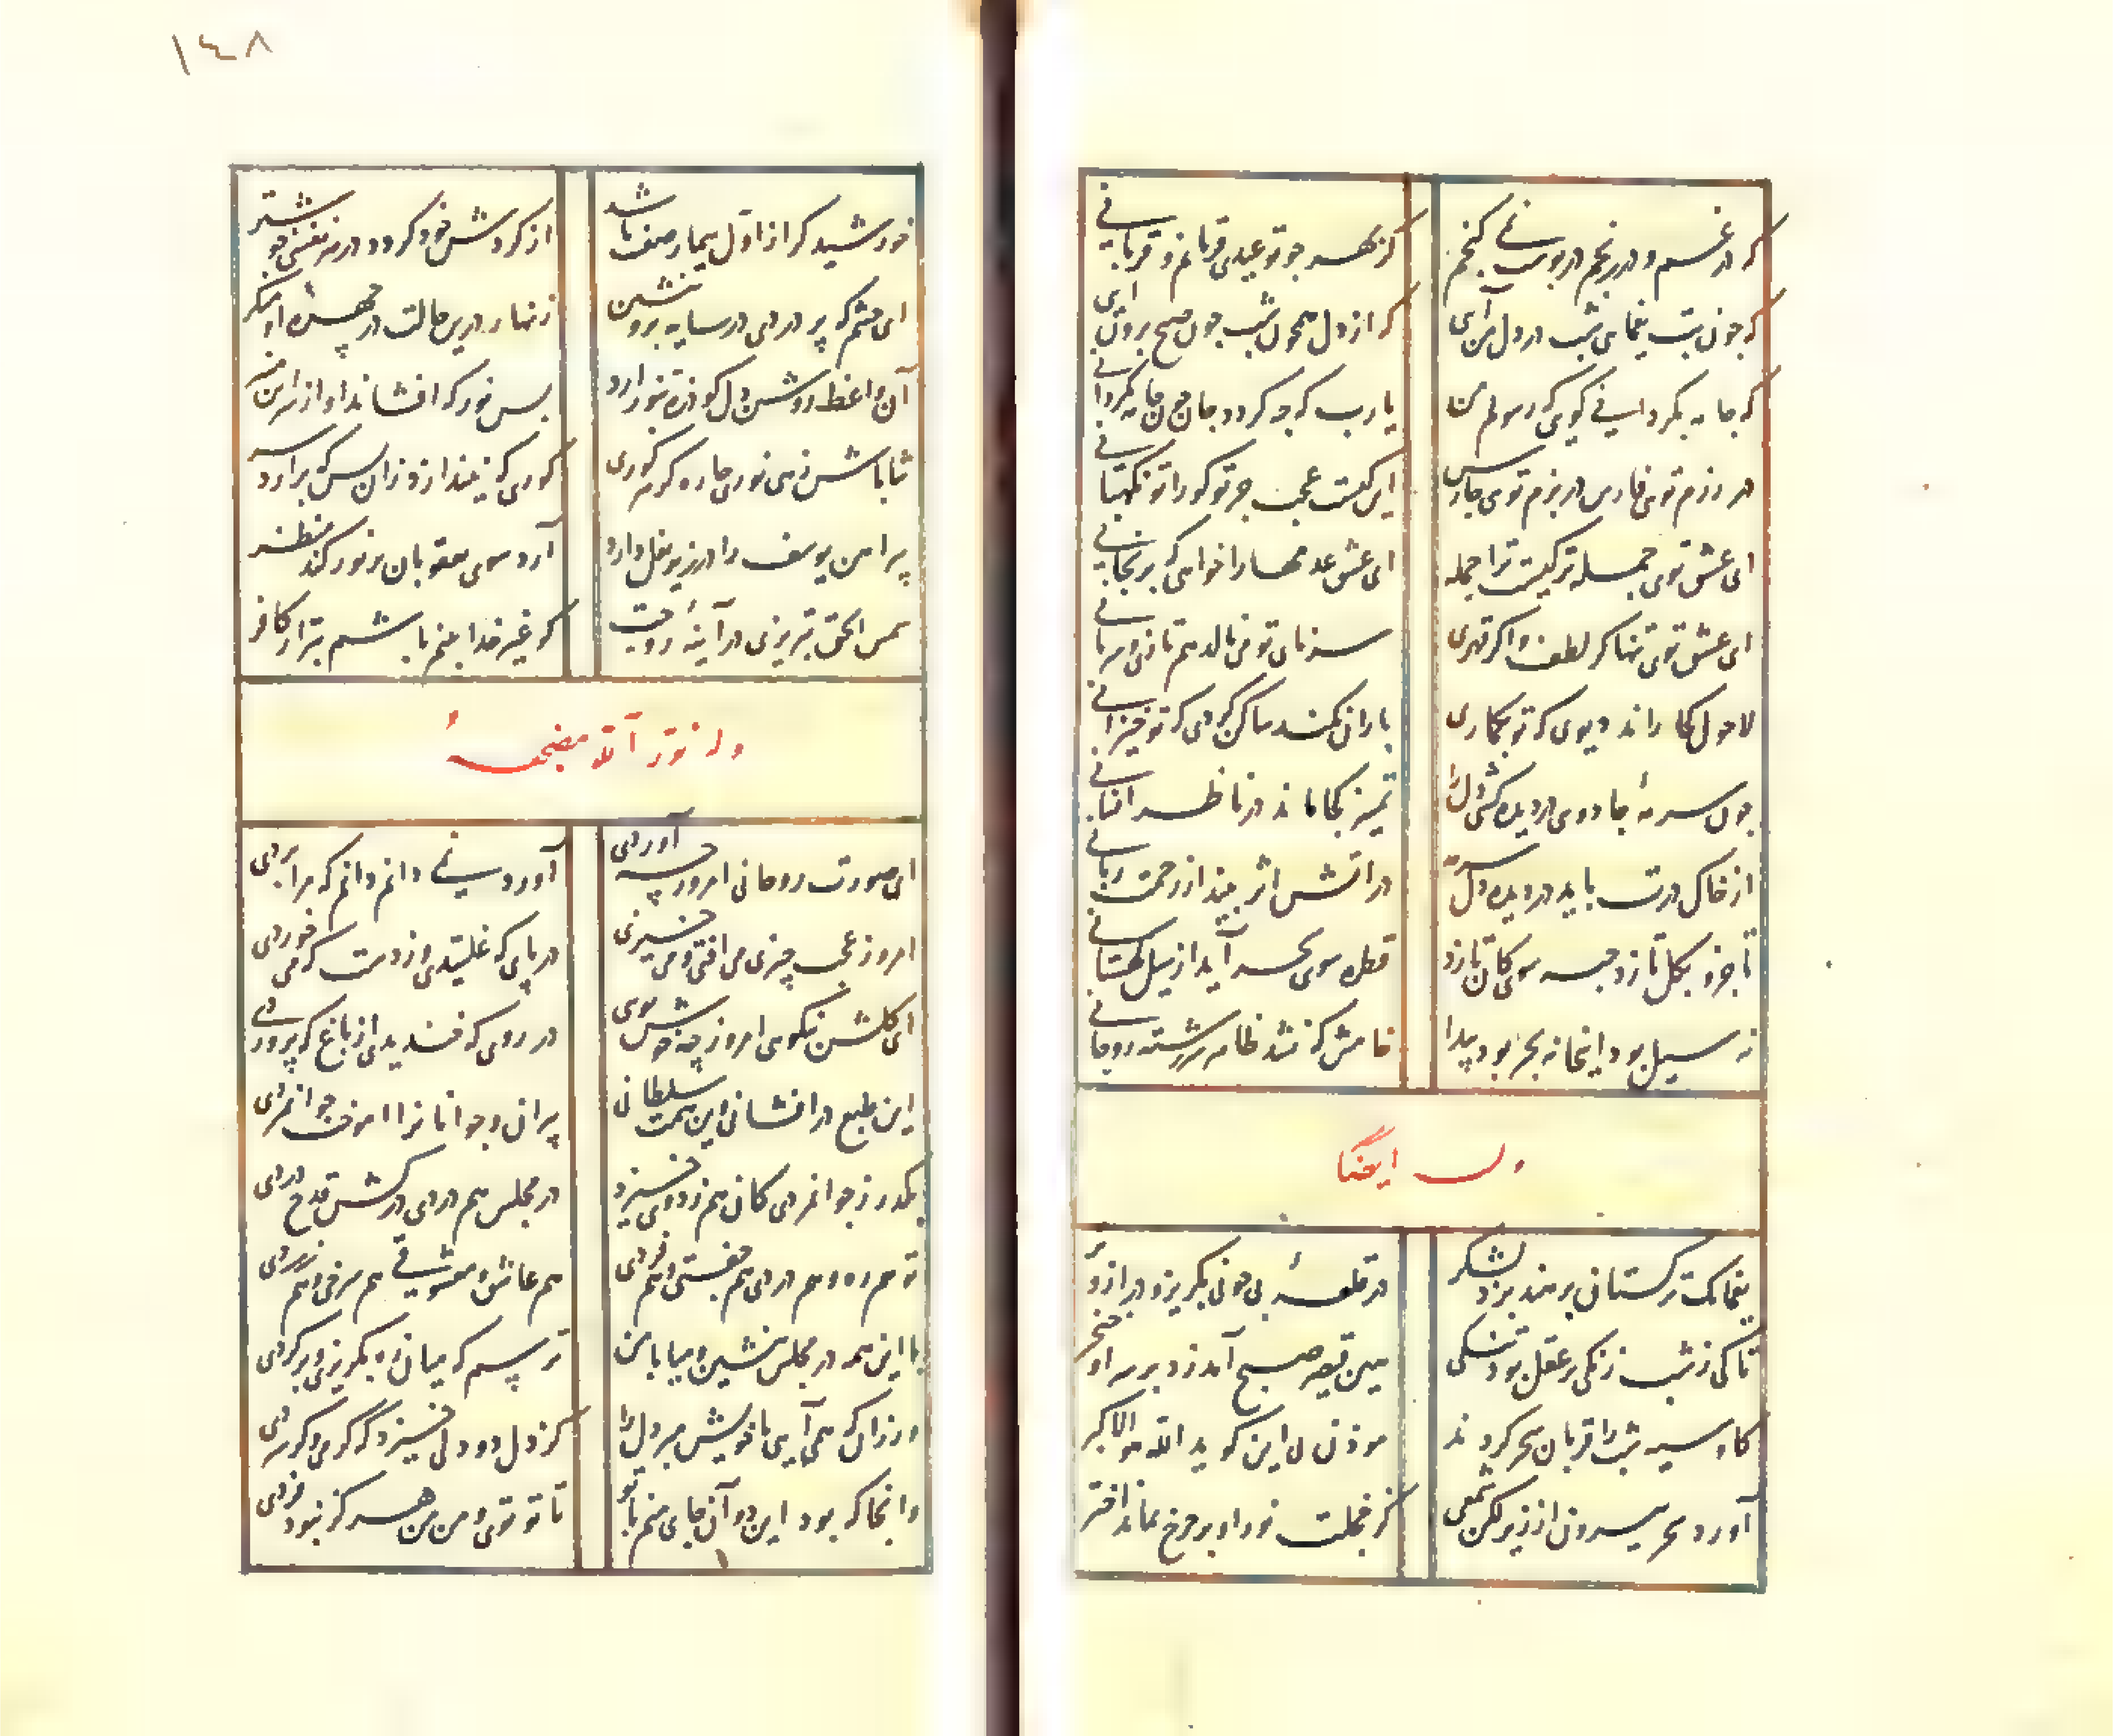 که در غم و در رنجم در بوست نی گنجم
کز بهر جو تو عیدی قربانم و قربانی
که چون بت یغمای شب در دل من آی
که از دل همچون شب چون صبح برون آیی
که جامه بگردانی کوی که رسولم من
یا رب که چه گردد جان چون جامه بگردانی
در رزم توی فارس در بزم توی حارس
این کیست عجب جز تو کو را تو نگهبانی
ای عشق توی جمله بر کیست ترا حمله
ای عشق عدمها را خواهی که برنجانی
ای عشق توی تنها گر لطفی و گر قهری
سرنای تو می نالد هم تازی و سریانی
لاحول کجا راند دیوی که تو بگماری
باران نکند ساکن گردی که تو خیزانی
چون سرمهٔ جادویی در دیده کشی دل را
تمییز کجا ماند در ناظر انسانی
از خاک درت باید در دیده دل سرمه
در آتش اثر بیند از رحمت ربانی
تا جزو بکل تازد حبه سوی کان تازد
قطره سوی بحر آید از سیل کهستانی
نه سیل بود اینجا نه بحر بود پیدا
خامش که نشد ظاهر سررشته روحانی
وله ایضا
یغما بک ترکستان بر هند بزد لشکر
در قلعهٔ بی خویشی بگریز و در از در
تا کی ز شب زنگی بر عقل بود تنگی
بین قیصر صبح آمد زد بر سر او خنجر
گاو سیه شب را قربان سحر کردند
موذن پی این گوید الله هو الاکبر
آورد سحر بیرون از زیر لگن شمعی
کز خجلت نور او بر چرخ نماند اختر
١٤٨
خورشید گر از اول بیمار صفت باشد
از گردش خود گردد در هر نفسی خوشتر
ای چشم که پر دردی در سایه برو بنشین
زنهار درین حالت در چهرهٔ او بنگر
آن واعظ روشن دل کو ذره نور آرد
بس نور که افشاند او از سر این منبر
شاباش زهی نوری بر کوری هر کوری
کوری که نبیند او زان پس که برآرد سر
پیراهن یوسف را در زیر بغل دارد
آرد سوی یعقوبان پر نور کند منظر
شمس الحق تبریزی در آینهٔ روحت
گر غیر خدا بینم باشم بتر از کافر
وله نور الله مضجعهٔ
ای صورت روحانی امروز چه آوردی
آوردی نی دانم دانم که مرا بردی
امروز عجب چیزی می افتی و می خیزی
در پای که غلتیدی از دست که می خوردی
ای گلشن نیکویی امروز چه خوش بویی
در روی که خندیدی از باغ که پروردی
این طبع درافشانی این همت سلطانی
پیران و جوانان را آموخت جوانمردی
بگذر ز جوانمردی کان هم ز دوی خیزد
در مجلس هم دردی درکش قدح دردی
تو هم ره و هم دردی هم جفتی و هم فردی
هم عاشق و معشوقی هم سرخی و هم زردی
با این همه در مجلس بنشین و میا با من
ترسم که میان ره بگریزی و برگردی
ور زان که همی آیی با خویش مبر دل را
کز دل دو دلی خیزد گه گرمی و گه سردی
وانجا که بود این دو آن جای منم با تو
تا تو توی و من من هرگز نبود فردی